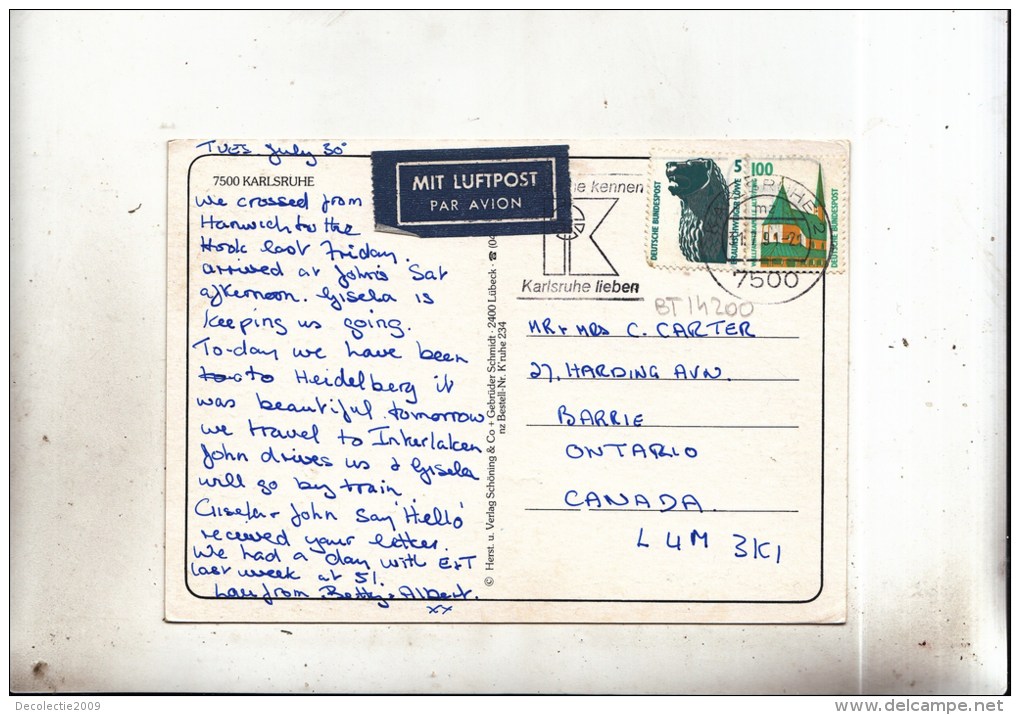 TUES July 30
7500 KARLSRUHE
We crossed from
Harwich to the
Hook last Friday.
arrived at John's Sat
afternoon. Gisela is
keeping us going.
To-day we have been
to Heidelberg it
was beautiful. tomorrow
we travel to Interlaken
John drives us & Gisela
will go by train.
Gisela + John say 'Hello'
received your letter.
We had a day with E+T
last week at 51.
Love from Betty + Albert.
xx
MIT LUFTPOST
PAR AVION
© Herst. u. Verlag Schöning & Co + Gebrüder Schmidt · 2400 Lübeck · ☎ (04
nz Bestell-Nr. K'ruhe 234
he kennen
Karlsruhe lieben
DEUTSCHE BUNDESPOST
5
BRAUNSCHWEIGER LÖWE
100
DEUTSCHE BUNDESPOST
KARLSRUHE 2
mz
91-21
7500
BT14200
MR + MRS C. CARTER
27, HARDING AVN.
BARRIE
ONTARIO
CANADA.
L4M 3K1
Decolectie2009
www.delcampe.net